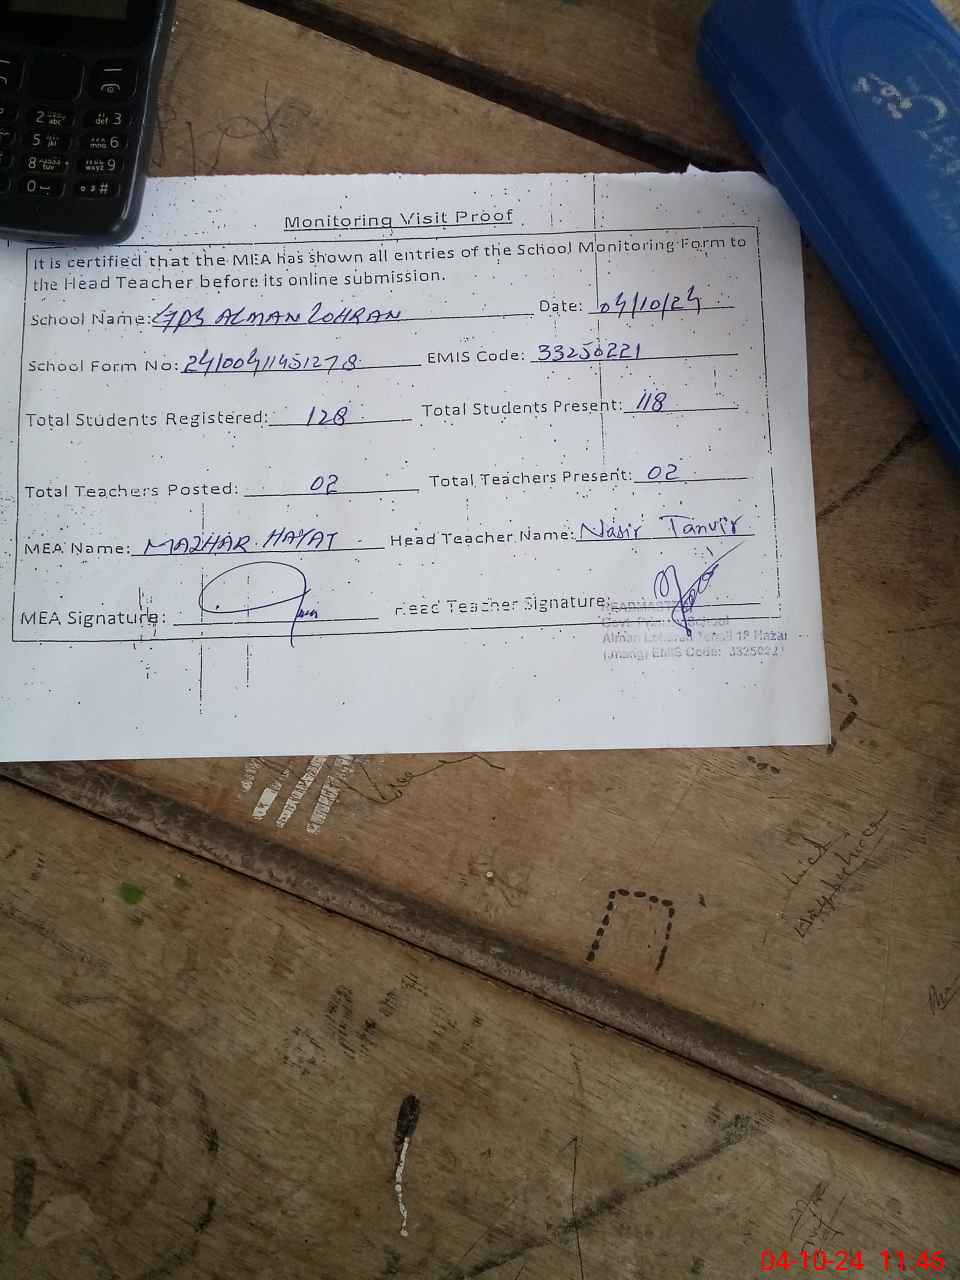 2 abc
def 3
5 jkl
mno 6
8 tuv
wxyz 9
0
* #
Monitoring Visit Proof
It is certified that the MEA has shown all entries of the School Monitoring Form to
the Head Teacher before its online submission.
School Name: GPS ALMAN LOHRAN Date: 04/10/24
School Form No: 24100411451278 EMIS Code: 33250221
Total Students Registered: 128 Total Students Present: 118
Total Teachers Posted: 02 Total Teachers Present: 02
MEA Name: MAZHAR HAYAT Head Teacher Name: Nasir Tanvir
MEA Signature: Head Teacher Signature:
HEADMASTER
Govt. Primary School
Alman Lohran Tehsil 18 Hazari
(Jhang) EMIS Code: 33250221
04-10-24 11:46